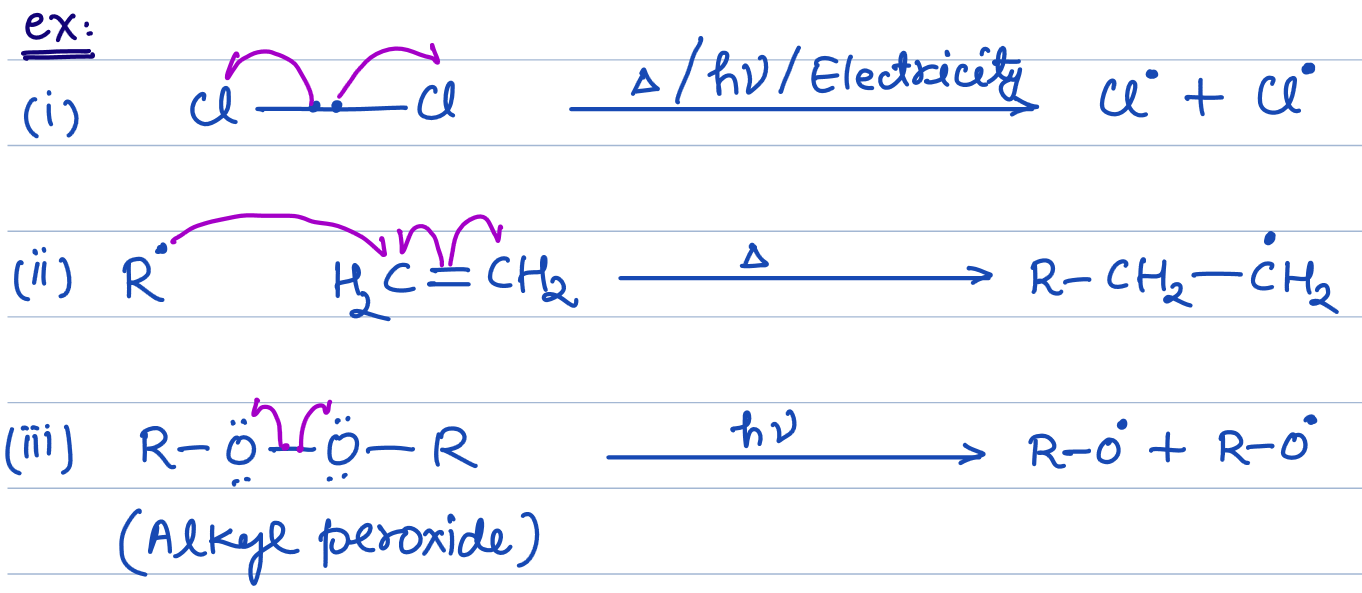 ex:
(i) Cl — Cl Δ/hν/Electricity Cl• + Cl•
(ii) R• H₂C=CH₂ Δ R–CH₂–ĊH₂
(iii) R–Ö–Ö–R hν R–O• + R–O•
(Alkyl peroxide)